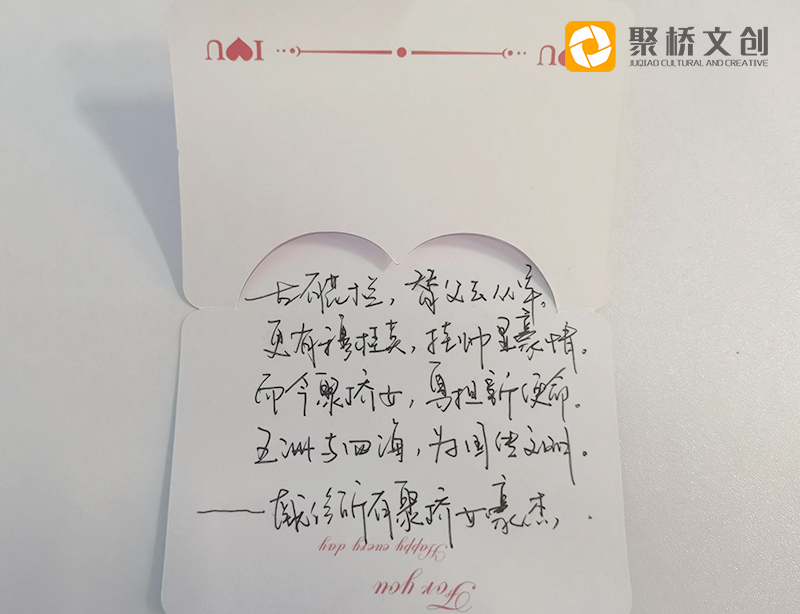 I♥U
U
聚桥文创
JUQIAO CULTURAL AND CREATIVE
古有花木兰，替父去从军。
更有穆桂英，挂帅显豪情。
而今聚桥女，肩担新使命。
五洲与四海，为国传文明。
——献给所有聚桥女豪杰
Happy every day
For you